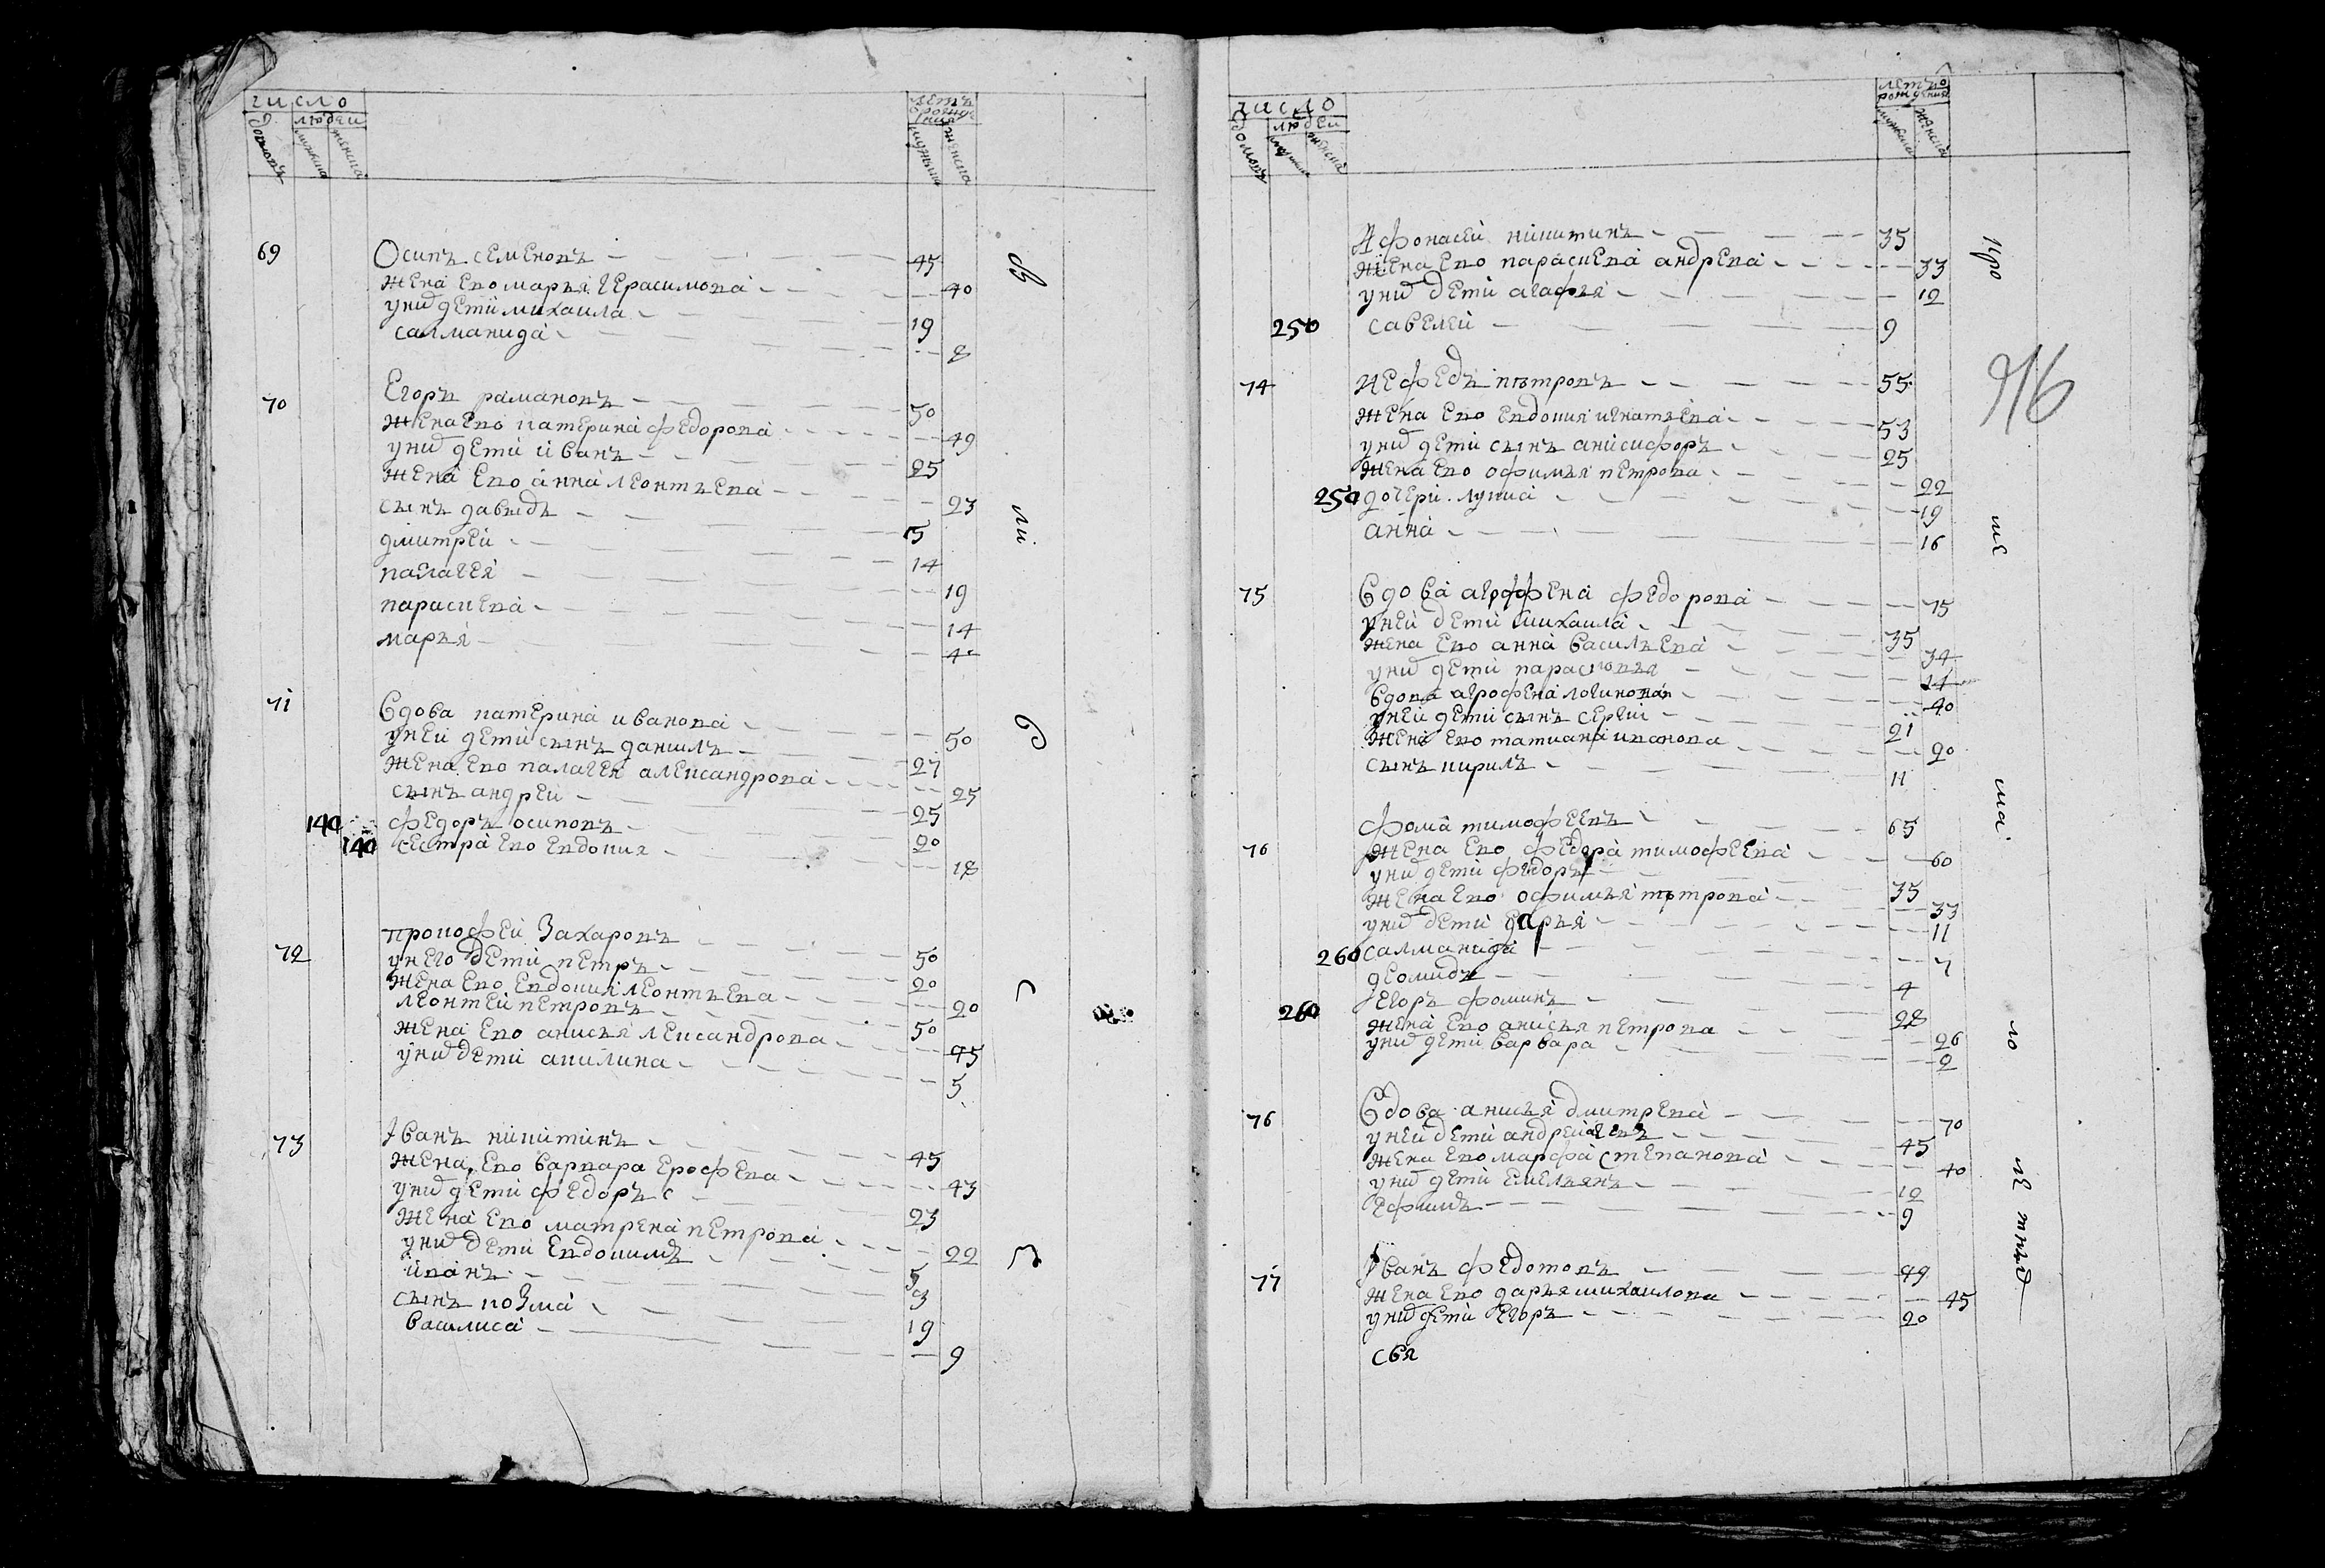 число
летъ
б рожде
ния
домовъ
людеи
мужеска
женска
мужеска
женска
69 Осипъ семеновъ 45
жена ево марья герасимова 40
у них дети михаила 19
салманида 8
70 Егоръ рамановъ 50
жена ево катерина федорова 49
у них дети иванъ 25
жена ево анна леонтьева 23
сынъ давыдъ 15
дмитреи 14
палагея 19
параскева 14
марья 4
71 вдова катерина иванова 50
у неи дети сынъ данилъ 27
жена ево палагея александрова 25
сынъ андреи 25
140 федоръ осиповъ 20
140 сестра ево евдокия 18
72 прокофеи захаровъ 50
у него дети петръ 20
жена ево евдокия леонтьева 20
леонтеи петровъ 50
жена ево анисья лександрова 45
у них дети акилина 5
73 Iванъ никитинъ 45
жена ево варвара ерофева 43
у них дети федоръ с 23
жена ево матрена петрова 22
у них дети евдокимъ 5
иванъ 3
сынъ козма 19
василиса 9
В
ли
число
летъ о
рождения
домовъ
людеи
мужеска
женска
мужеска
женска
Афонасеи никитинъ 35
жена ево параскева андрева 33
у них дети агафья 12
250 савелеи 9
74 нефедъ пътровъ 55
жена ево евдокия игнатьева 53
у них дети сынъ анисифоръ 25
жена ево офимья петрова 22
250 дочери лукиа 19
анна 16
75 вдова агрофена федорова 75
у неи дети михаила 35
жена ево анна василъева 34
у них дети парасковья 14
вдова агрофена логинова 40
у неи дети сынъ сергеи 21
жена ево татиана иванова 20
сынъ кирилъ 11
фома тимофеевъ 65
76 жена ево федора тимофеева 60
у них дети федоръ 35
жена ево офимья пътрова 33
у них дети дарья 11
260 салманида 7
деомидъ 4
260 егоръ фоминъ 28
жена ево анисья петрова 26
у них дети варвара 2
76 вдова анисья дмитрева 70
у неи дети андреи 45
жена ево марфа степанова 40
у них дети емелъянъ 12
ефимъ 9
77 Iванъ федотовъ 49
жена ево дарья михаилова 45
у них дети егоръ 20
свя
кро
ше
ма
ло
летных